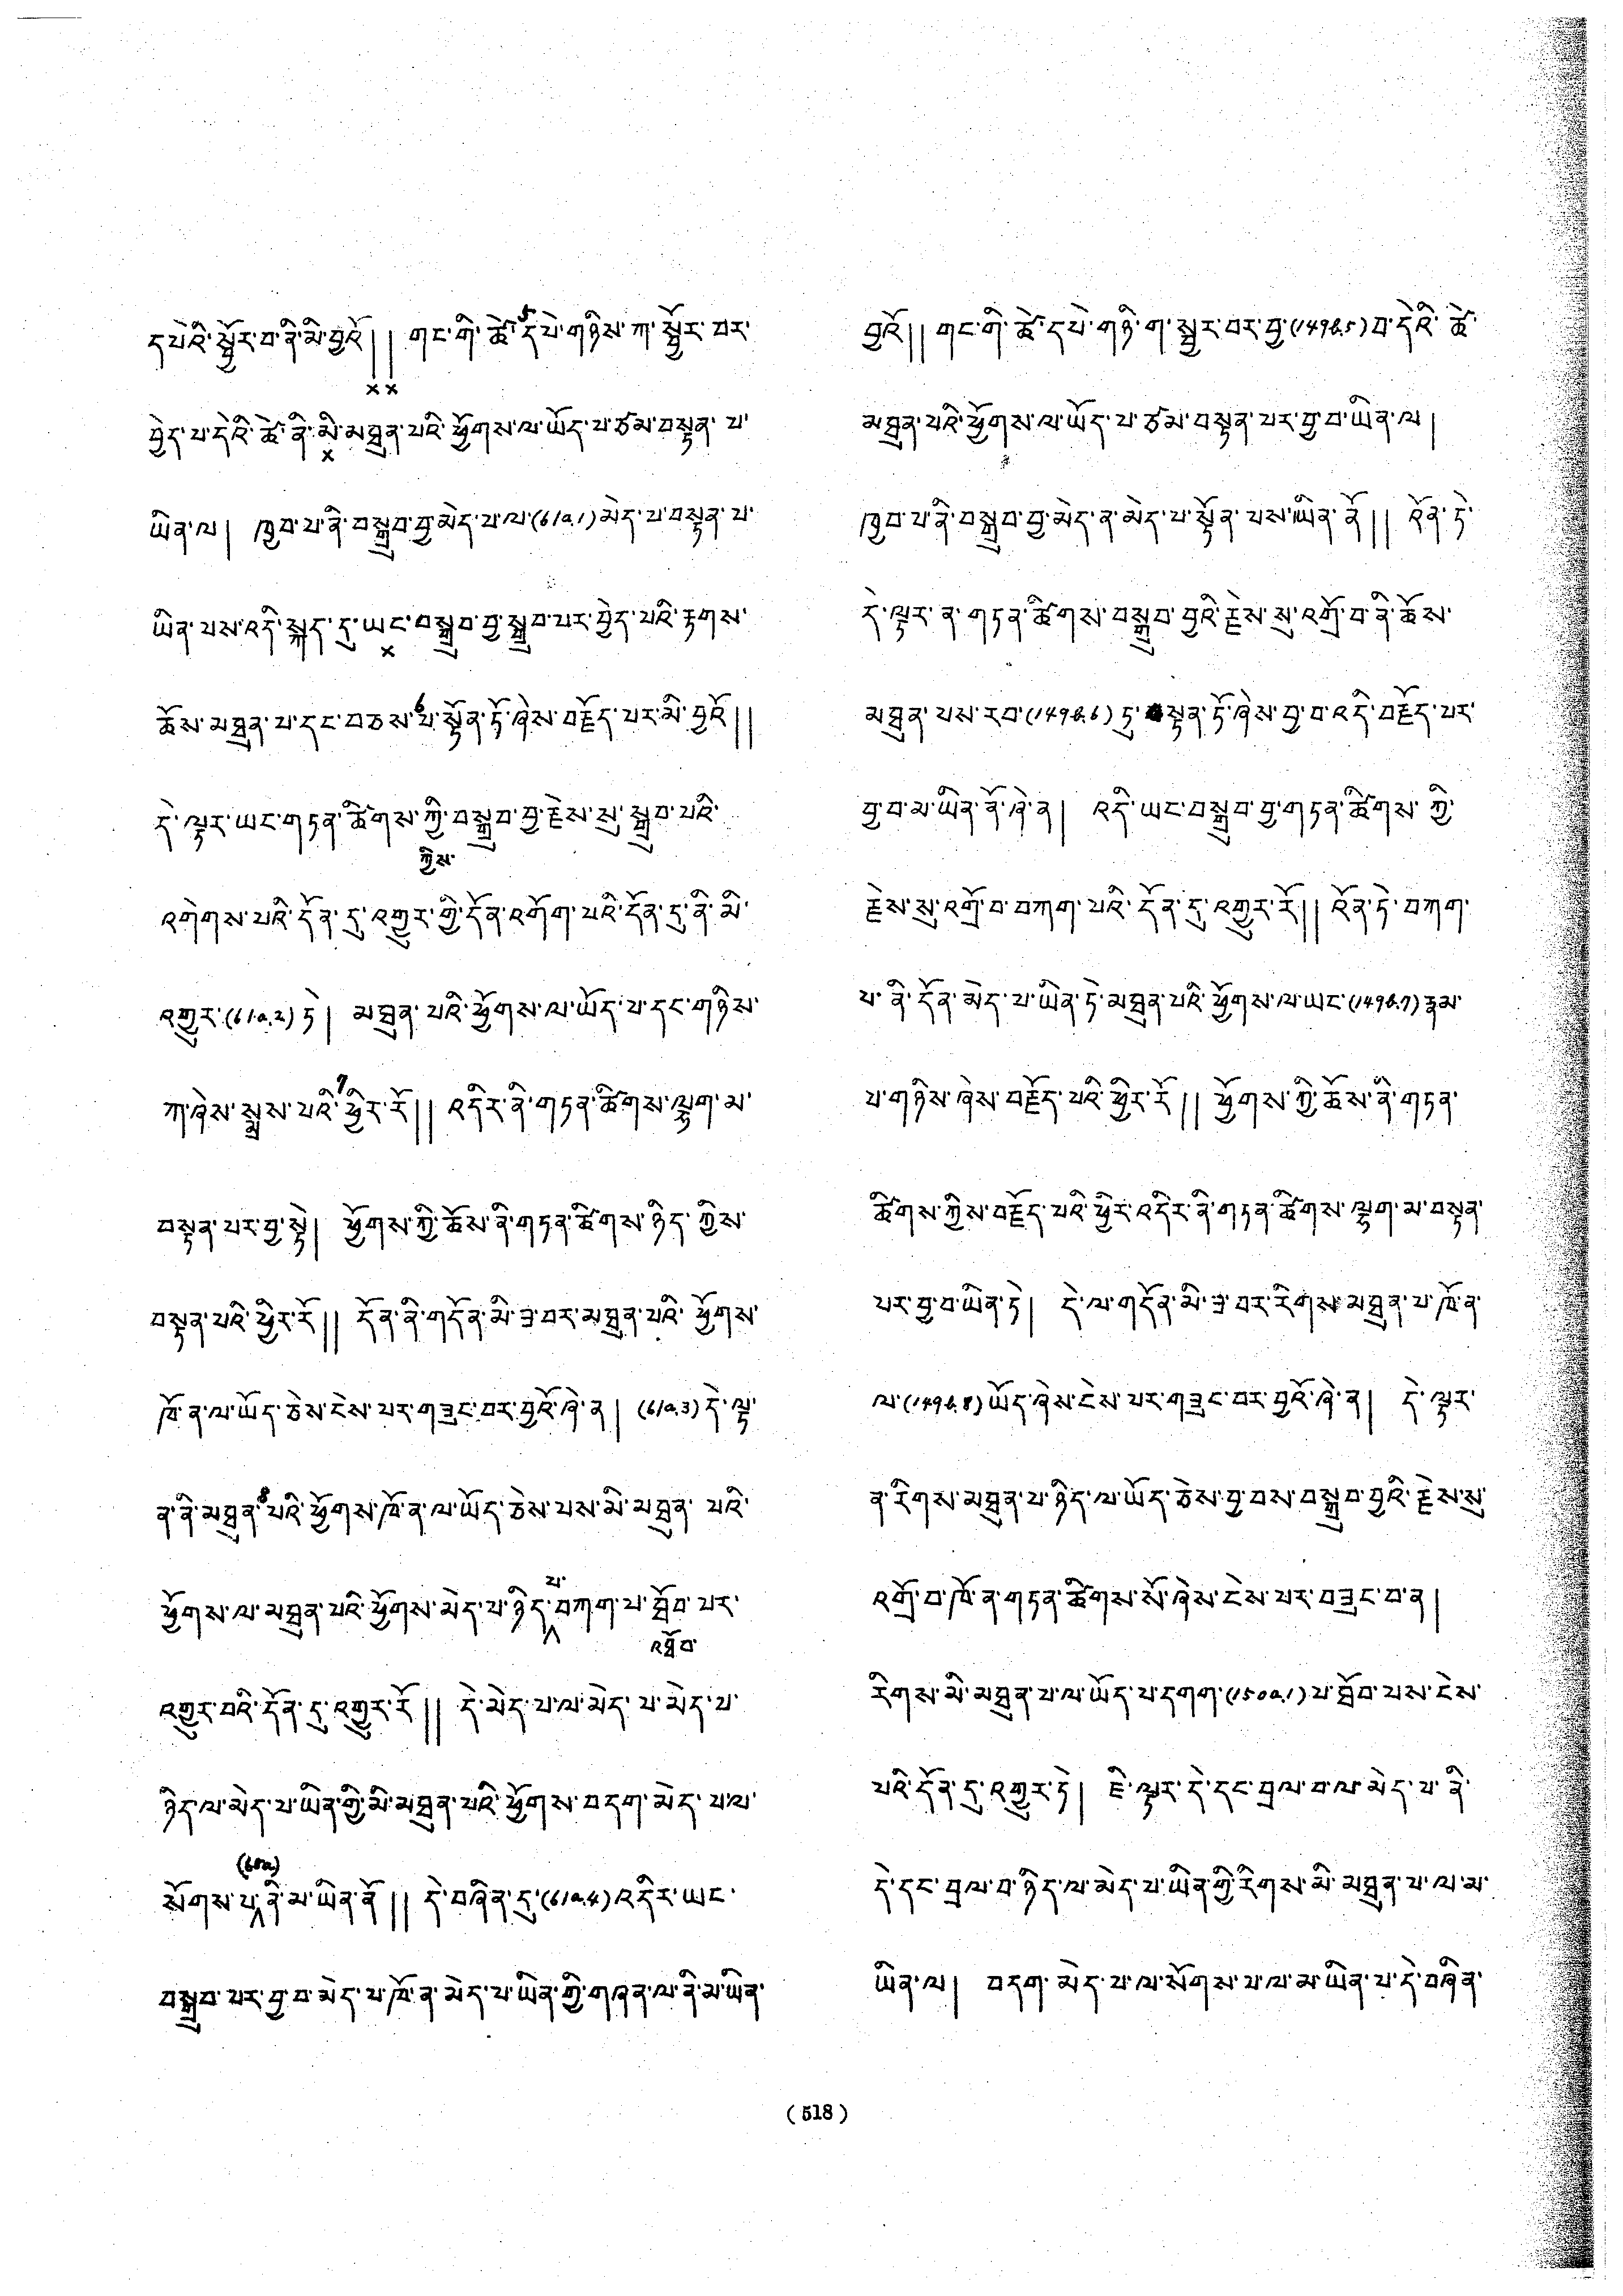 དཔེའི་སྦྱོར་བ་ནི་མི་བྱའོ།། གང་གི་ཚེ་5དཔེ་གཉིས་ཀ་སྦྱོར་བར་
××
བྱེད་པ་དེའི་ཚེ་ནི་མི་མཐུན་པའི་ཕྱོགས་ལ་ཡོད་པ་ཙམ་བསྟན་པ་
×
ཡིན་ལ། ཁྱབ་པ་ནི་བསྒྲུབ་བྱ་མེད་པ་ལ་(61a.1)མེད་པ་བསྟན་པ་
ཡིན་པས་འདི་སྐད་དུ་ཡང་བསྒྲུབ་བྱ་སྒྲུབ་པར་བྱེད་པའི་རྟགས་
×
ཆོས་མཐུན་པ་དང་བཅས་6པ་སྟོན་ཏོ་ཞེས་བརྗོད་པར་མི་བྱའོ།།
དེ་ལྟར་ཡང་གཏན་ཚིགས་ཀྱི་བསྒྲུབ་བྱ་རྗེས་སུ་སྒྲུབ་པའི་
ཀྱིས་
འགེགས་པའི་དོན་དུ་འགྱུར་གྱི་དོན་འགོག་པའི་དོན་དུ་ནི་མི་
འགྱུར་(61a.2)ཏེ། མཐུན་པའི་ཕྱོགས་ལ་ཡོད་པ་དང་གཉིས་
ཀ་ཞེས་སྨྲས་པའི་7ཕྱིར་རོ།། འདིར་ནི་གཏན་ཚིགས་ལྷག་མ་
བསྟན་པར་བྱ་སྟེ། ཕྱོགས་ཀྱི་ཆོས་ནི་གཏན་ཚིགས་ཉིད་ཀྱིས་
བསྟན་པའི་ཕྱིར་རོ།། དོན་ནི་གདོན་མི་ཟ་བར་མཐུན་པའི་ཕྱོགས་
ཁོ་ན་ལ་ཡོད་ཅེས་ངེས་པར་གཟུང་བར་བྱའོ་ཞེ་ན། (61a.3)དེ་ལྟ་
ན་ནི་མཐུན་8པའི་ཕྱོགས་ཁོ་ན་ལ་ཡོད་ཅེས་པས་མི་མཐུན་པའི་
ཕྱོགས་ལ་མཐུན་པའི་ཕྱོགས་མེད་པ་ཉིད་བཀག་པ་ཐོབ་པར་
པ་
འཐོབ་
འགྱུར་བའི་དོན་དུ་འགྱུར་རོ།། དེ་མེད་པ་ལ་མེད་པ་མེད་པ་
ཉིད་ལ་མེད་པ་ཡིན་གྱི་མི་མཐུན་པའི་ཕྱོགས་བདག་མེད་པ་ལ་
(60a)
སོགས་པ་ནི་མ་ཡིན་ནོ།། དེ་བཞིན་དུ་(61a.4)འདིར་ཡང་
བསྒྲུབ་པར་བྱ་བ་མེད་པ་ཁོ་ན་མེད་པ་ཡིན་གྱི་གཞན་ལ་ནི་མ་ཡིན་
བྱའོ།། གང་གི་ཚེ་དཔེ་གཉི་ག་སྦྱར་བར་བྱ་(149b.5)བ་དེའི་ཚེ་
མཐུན་པའི་ཕྱོགས་ལ་ཡོད་པ་ཙམ་བསྟན་པར་བྱ་བ་ཡིན་ལ།
ཁྱབ་པ་ནི་བསྒྲུབ་བྱ་མེད་ན་མེད་པ་སྟོན་པས་ཡིན་ནོ།། འོན་ཏེ་
དེ་ལྟར་ན་གཏན་ཚིགས་བསྒྲུབ་བྱའི་རྗེས་སུ་འགྲོ་བ་ནི་ཆོས་
མཐུན་པས་རབ་(149b.6)ཏུ་སྟན་ཏོ་ཞེས་བྱ་བ་འདི་བརྗོད་པར་
བྱ་བ་མ་ཡིན་ནོ་ཞེ་ན། འདི་ཡང་བསྒྲུབ་བྱ་གཏན་ཚིགས་ཀྱི་
རྗེས་སུ་འགྲོ་བ་བཀག་པའི་དོན་དུ་འགྱུར་རོ།། འོན་ཏེ་བཀག་
པ་ནི་དོན་མེད་པ་ཡིན་ཏེ་མཐུན་པའི་ཕྱོགས་ལ་ཡང་(149b.7)རྣམ་
པ་གཉིས་ཞེས་བརྗོད་པའི་ཕྱིར་རོ།། ཕྱོགས་ཀྱི་ཆོས་ནི་གཏན་
ཚིགས་ཀྱིས་བརྗོད་པའི་ཕྱིར་འདིར་ནི་གཏན་ཚིགས་ལྷག་མ་བསྟན་
པར་བྱ་བ་ཡིན་ཏེ། དེ་ལ་གདོན་མི་ཟ་བར་རིགས་མཐུན་པ་ཁོ་ན་
ལ་(149b.8)ཡོད་ཞེས་ངེས་པར་གཟུང་བར་བྱའོ་ཞེ་ན། དེ་ལྟར་
ན་རིགས་མཐུན་པ་ཉིད་ལ་ཡོད་ཅེས་བྱ་བས་བསྒྲུབ་བྱའི་རྗེས་སུ་
འགྲོ་བ་ཁོ་ན་གཏན་ཚིགས་སོ་ཞེས་ངེས་པར་བཟུང་བ་ན།
རིགས་མི་མཐུན་པ་ལ་ཡོད་པ་དགག་(150a.1)པ་ཐོབ་པས་ངེས་
པའི་དོན་དུ་འགྱུར་ཏེ། ཇི་ལྟར་དེ་དང་བྲལ་བ་ལ་མེད་པ་ནི་
དེ་དང་བྲལ་བ་ཉིད་ལ་མེད་པ་ཡིན་གྱི་རིགས་མི་མཐུན་པ་ལ་མ་
ཡིན་ལ། བདག་མེད་པ་ལ་སོགས་པ་ལ་མ་ཡིན་པ་དེ་བཞིན་
(518)